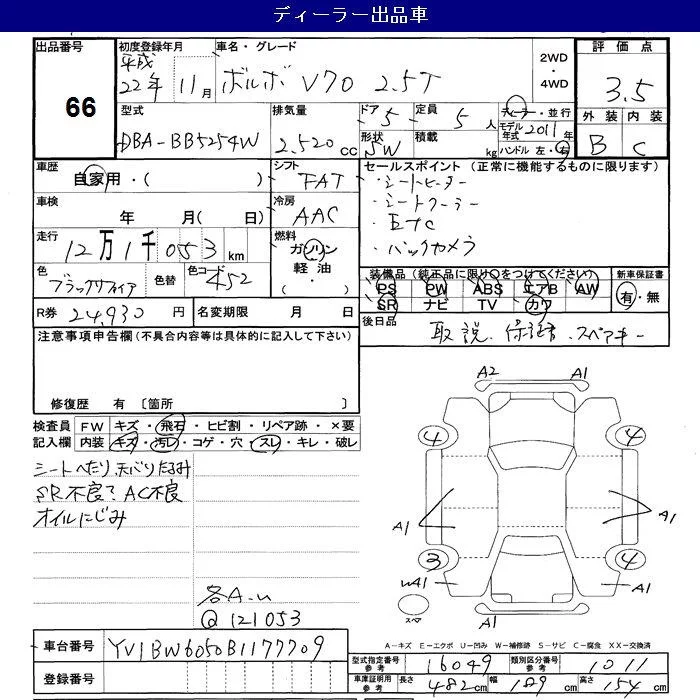 ディーラー出品車
出品番号 66
初度登録年月 平成22年 11月
車名・グレード ボルボ V70 2.5T
2WD ・ 4WD
評価点 3.5
外装 内装
B C
型式 DBA-BB5254W
排気量 2.520 cc
ドア 5 定員 5 人
形状 SW 積載 kg
ディーラー・並行
モデル年式 2011年
ハンドル 左・右
車歴 自家用・( )
シフト FAT
車検 年 月( 日)
冷房 AAC
走行 12万1千053 km
燃料 ガソリン・軽油・( )
色 ブラックサファイア 色替 色コード 452
R券 24,930 円 名変期限 月 日
セールスポイント (正常に機能するものに限ります)
・シートヒーター
・シートクーラー
・ETC
・バックカメラ
装備品 (純正品に限り○をつけてください) 新車保証書
PS PW ABS エアB AW 有・無
SR ナビ TV カワ
後日品 取説、保証書、スペアキー
注意事項申告欄 (不具合内容等は具体的に記入して下さい)
修復歴 有 〔箇所 〕
検査員記入欄 FW キズ・飛石・ヒビ割・リペア跡・×要
内装 キズ・汚レ・コゲ・穴・スレ・キレ・破レ
シートへたり、天バリたるみ
SR不良? AC不良
オイルにじみ
各A.u
@121053
A2 A1
4 4
A1 A1
3 4
WA1 A1
スペア A1
A-キズ E-エクボ U-凹み W-補修跡 S-サビ C-腐食 XX-交換済
車台番号 YV1BW6050B1177709
登録番号
型式指定番号 参考 16049 類別区分番号 参考 1011
車庫証明用 参考 長さ 482cm 幅 189cm 高さ 154cm